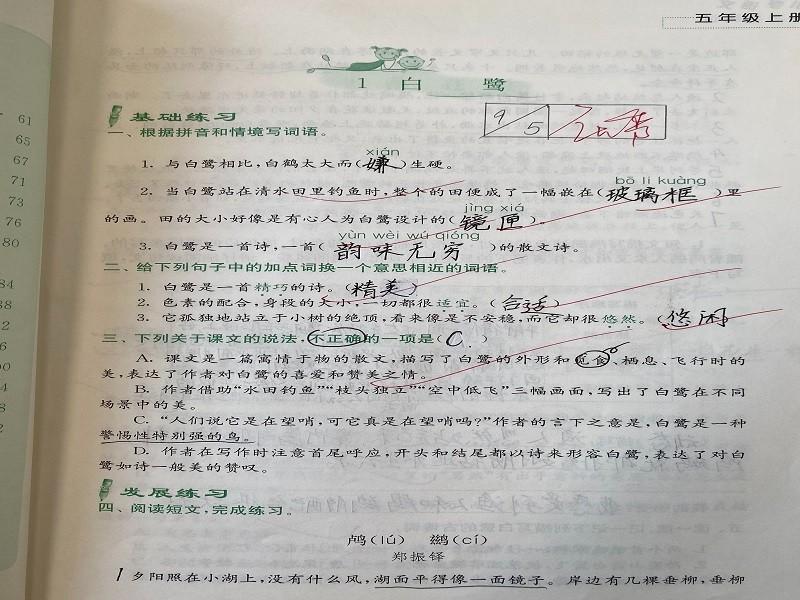 五年级上册
1 白 鹭
基础练习
9/5
一、根据拼音和情境写词语。
xián
1. 与白鹭相比,白鹤太大而(嫌)生硬。
bō li kuàng
2. 当白鹭站在清水田里钓鱼时,整个的田便成了一幅嵌在(玻璃框)里
jìng xiá
的画。田的大小好像是有心人为白鹭设计的(镜匣)。
yùn wèi wú qióng
3. 白鹭是一首诗,一首(韵味无穷)的散文诗。
二、给下列句子中的加点词换一个意思相近的词语。
1. 白鹭是一首精巧的诗。(精美)
2. 色素的配合,身段的大小,一切都很适宜。(合适)
3. 它孤独地站立于小树的绝顶,看来像是不安稳,而它却很悠然。(悠闲)
三、下列关于课文的说法,不正确的一项是(C)
A. 课文是一篇寓情于物的散文,描写了白鹭的外形和觅食、栖息、飞行时的
美,表达了作者对白鹭的喜爱和赞美之情。
B. 作者借助“水田钓鱼”“枝头独立”“空中低飞”三幅画面,写出了白鹭在不同
场景中的美。
C. “人们说它是在望哨,可它真是在望哨吗?”作者的言下之意是,白鹭是一种
警惕性特别强的鸟。
D. 作者在写作时注意首尾呼应,开头和结尾都以诗来形容白鹭,表达了对白
鹭如诗一般美的赞叹。
发展练习
四、阅读短文,完成练习。
鸬(lú) 鹚(cí)
郑振铎
1 夕阳照在小湖上,没有什么风,湖面平得像一面镜子。岸边有几棵垂柳,垂柳
61
65
67
71
73
76
80
84
88